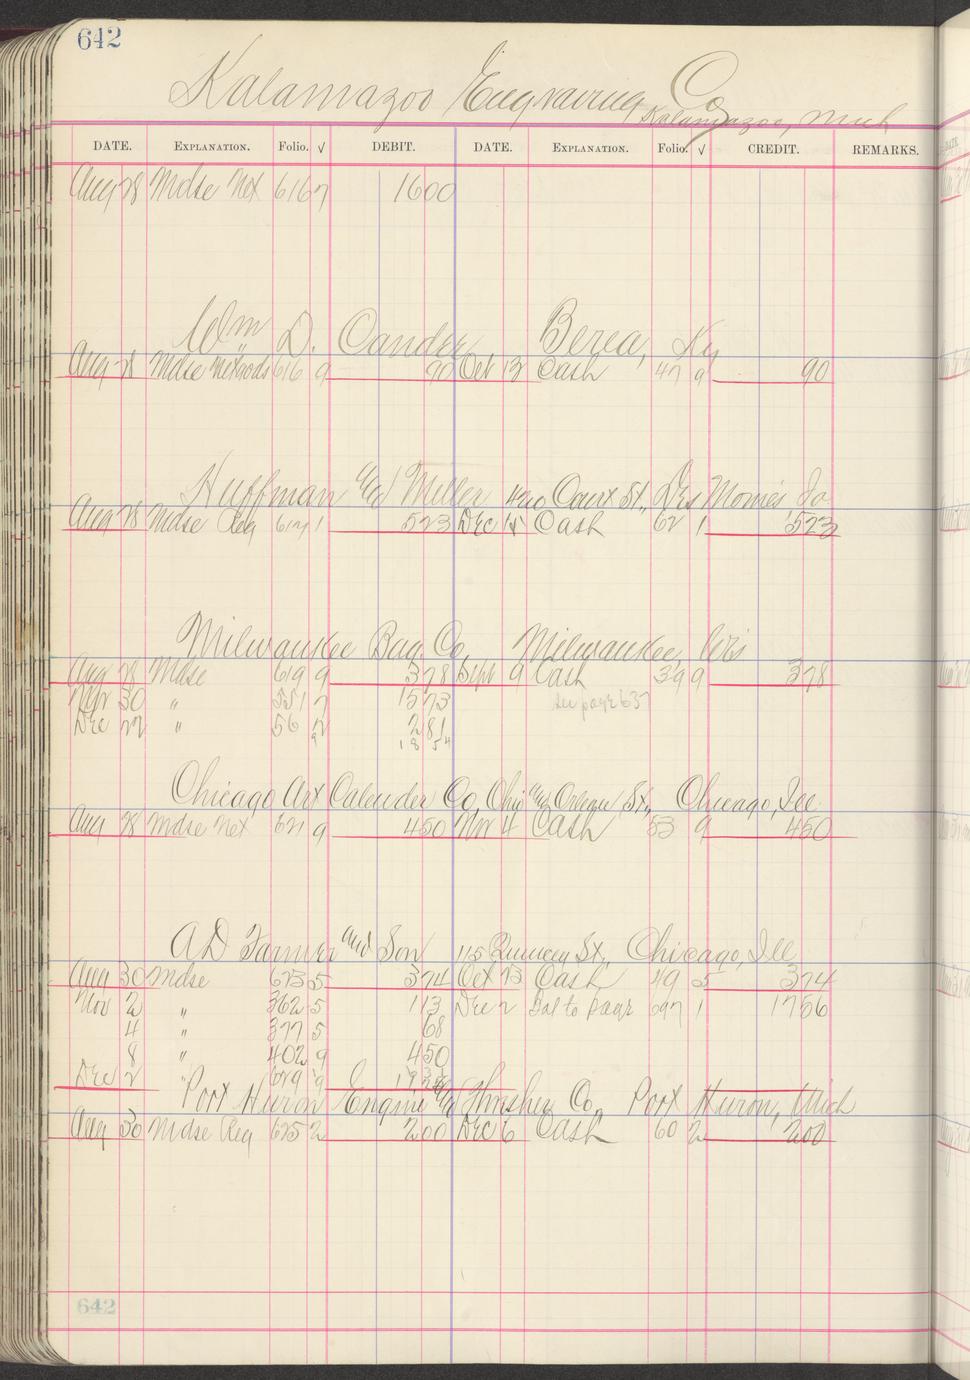 642
Kalamazoo Engraving Co
Kalamazoo, Mich
DATE. EXPLANATION. Folio. √ DEBIT. DATE. EXPLANATION. Folio. √ CREDIT. REMARKS.
Aug 28 Mdse Net 616 7 1600
Wm D. Berea, Ky
Aug 28 Mdse 616 9 90 Oct 13 Cash 47 9 90
Huffman and Miller 420 Court St., Des Moines, Ia
Aug 28 Mdse Reg 617 1 523 Dec 15 Cash 62 1 523
Milwaukee Bag Co, Milwaukee, Wis
Aug 28 Mdse 619 9 378 Sept 9 Cash 39 9 378
30 " 551 7 1573 see page 637
Dec 22 " 56 2 281
9 18 54
Chicago Art Calender Co, Ohio and Orleans St., Chicago, Ill
Aug 28 Mdse Net 621 9 450 Nov 4 Cash 53 9 450
AD Farmer and Son 115 Quincy St., Chicago, Ill
Aug 30 Mdse 623 5 374 Oct 13 Cash 49 5 374
Nov 2 " 362 5 113 Dec 2 Bal to page 697 1 1756
4 " 377 5 68
8 " 402 9 450
Dec 2 " 629 9
Port Huron Engine and Thresher Co, Port Huron, Mich
Aug 30 Mdse Reg 625 2 200 Dec 6 Cash 60 2 200
642